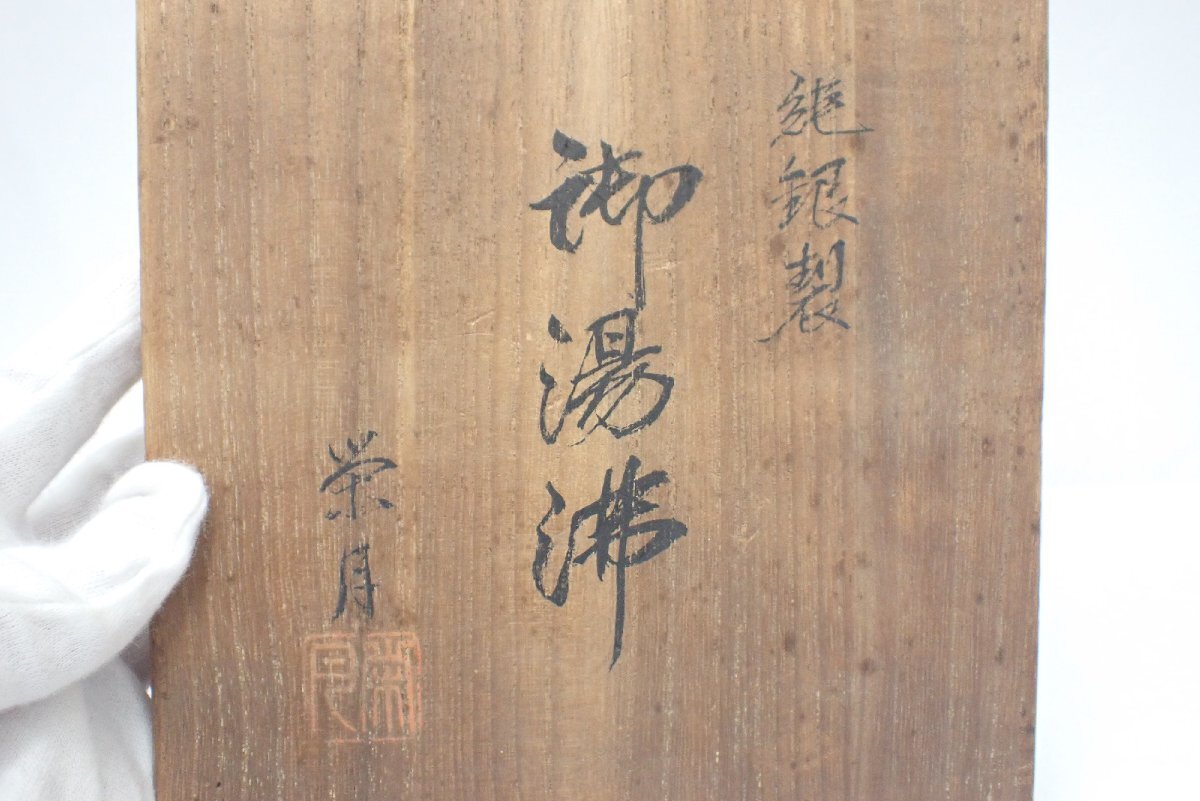 純銀製
御湯沸
栄月
栄月